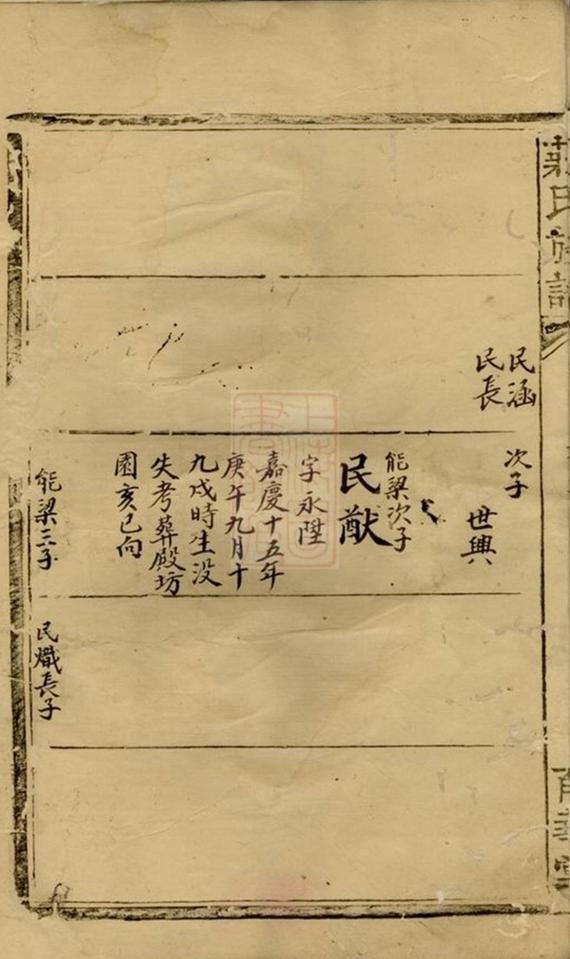 氏族譜
民涵
民長
次子
世興
能梁次子
民猷
字永陞
嘉慶十五年
庚午九月十
九戌時生没
失考葬殿坊
園亥巳向
能梁三子
民熾長子